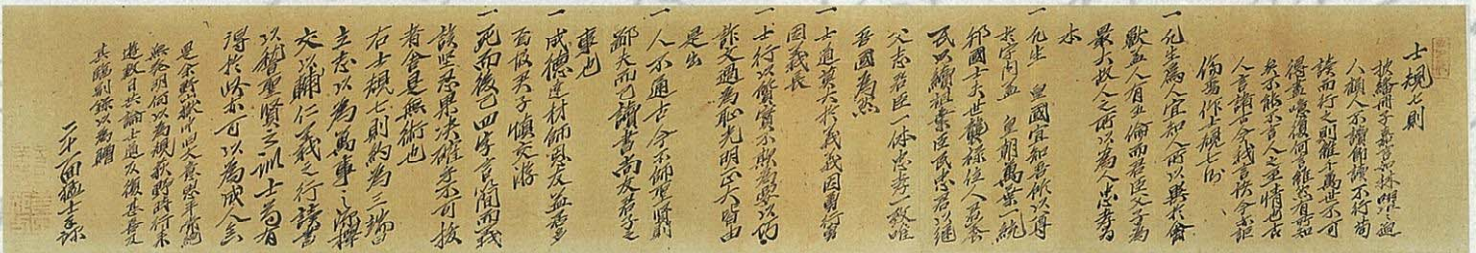 士規七則
披繙冊子嘉言如林躍々迫
人顧人不讀即讀不行苟
讀而行之則雖千萬世不可
得盡噫復何言雖然有所知
矣不能不言人之至情也古
人言諸古今我言諸今亦詎
傷焉作士規七則
一凡生爲人宜知人所以異於禽
獸蓋人有五倫而君臣父子爲
最大故人之所以爲人忠孝爲
本
一凡生 皇國宜知吾所以尊
於宇内蓋 皇朝萬葉一統
邦國士夫世襲禄位人君養
民以續祖業臣民忠君以継
父志君臣一体忠孝一致唯
吾國為然
一士道莫大於義義因勇行勇
因義長
一士行以質實不欺爲要以巧
詐文過為恥光明正大皆由
是出
一人不通古今不師聖賢則
鄙夫而已讀書尚友君子之
事也
一成德達材師恩友益居多
焉故君子慎交游
一死而後已四字言簡而義
該堅忍果决確乎不可拔
者舍是無術也
右士規七則約為三端曰
立志以為萬事之源擇
交以輔仁義之行讀書
以稽聖賢之訓士苟有
得於此亦可以為成人矣
二十一回猛士手錄